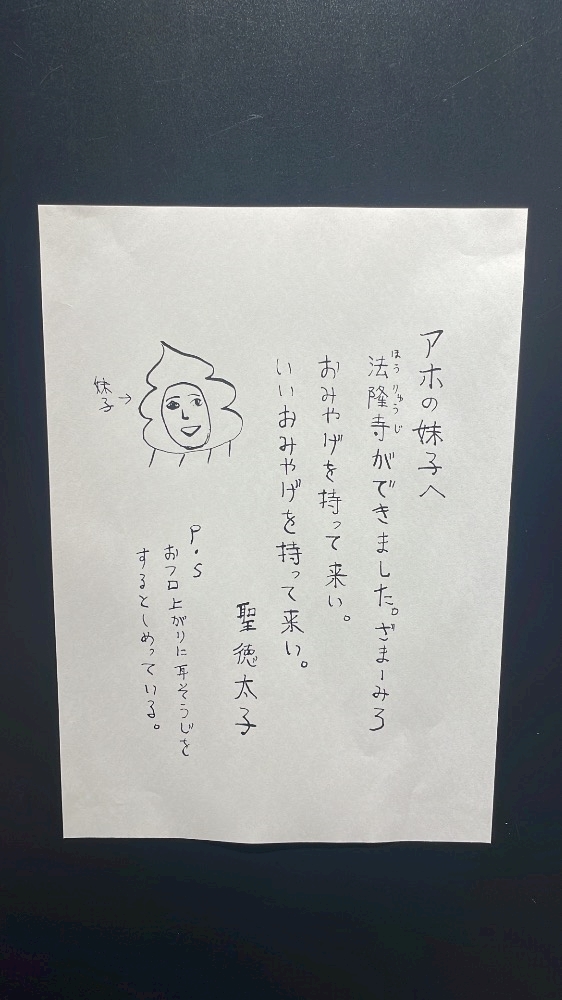 アホの妹子へ
法隆寺ができました。ざまーみろ
ほうりゅうじ
おみやげを持って来い。
いいおみやげを持って来い。
聖徳太子
妹子→
P.S
おフロ上がりに耳そうじを
するとしめっている。